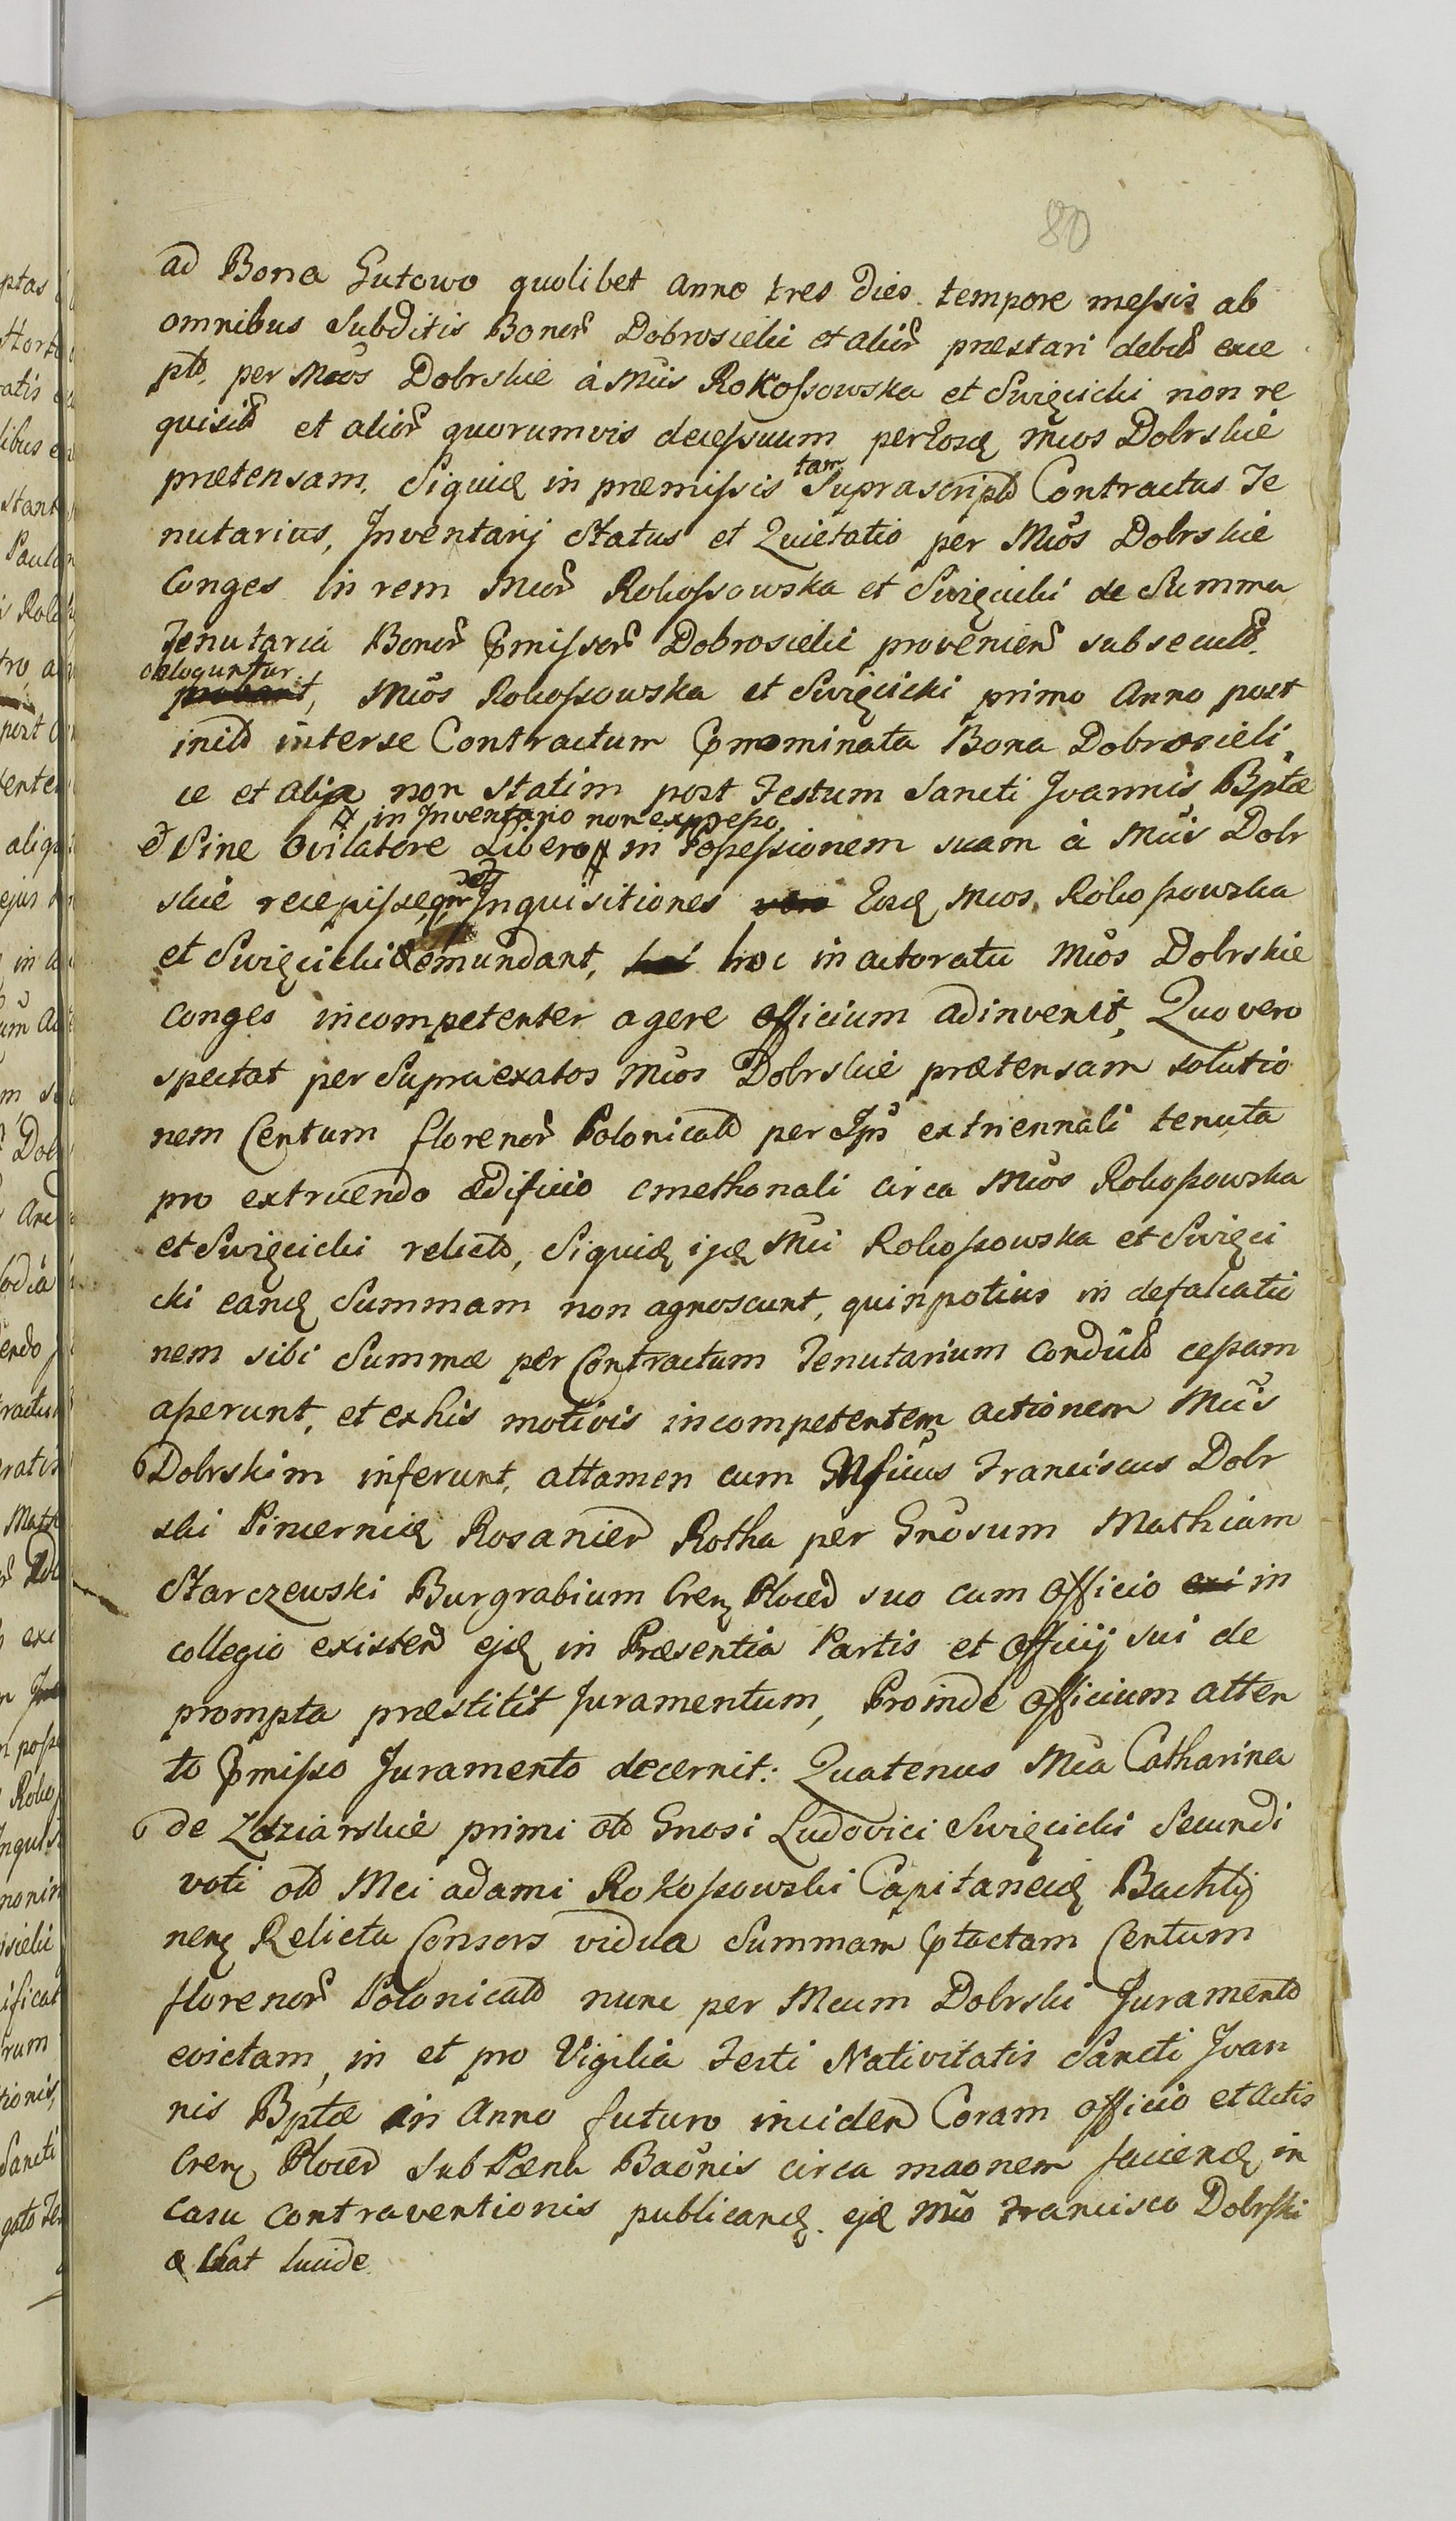 80
ad Bona Gutowo quolibet anno tres dies tempore messis ab
omnibus Subditis Bonor Dobrosielic et alior præstari debit exce
pto, per Mcos Dobrskie à Mcis Rokossowska et Swięcicki non re
quisit et alior quorumvis decessuum per Eosd Mcos Dobrskie
prætensam. Siquid in præmissis tam Suprascript Contractus Te
nutarius, Inventarij Status et Quietatio per Mcos Dobrskie
Conges in rem Mcor Rokossowska et Swięcicki de Summa
Tenutaria Bonor Pmissor Dobrosielic provenien subsecut
eloquuntur, Mcos Rokossowska et Swięcicki primo Anno post
init interse Contractum Pnominata Bona Dobrosieli
ce et alia non statim post Festum Sancti Joannis Bptæ
in Inventario non expresso
et Sine Ovilatore Libero in Possessionem suam à Mcis Dobr
skie recepisse, Inquisitiones Eosd Mcos Rokossowska
et Swięcicki emundant, hoc in actoratu Mcos Dobrskie
conges incompetenter agere officium adinvenit, Quo vero
spectat per Supraexatos Mcos Dobrskie prætensam solutio
nem Centum florenor Polonical per Ips ex triennali tenuta
pro extruendo ædificio cmethonali circa Mcos Rokossowska
et Swięcicki relicto, Siquid ijd Mci Rokossowska et Swięci
cki eand Summam non agnoscunt, quinpotius in defalcatio
nem sibi Summæ per Contractum Tenutarium condict cessam
asserunt, et ex his motivis incompetentem actionem Mcis
Dobrskim inferunt, attamen cum Mficus Franciscus Dobr
ski Pincernid Rosanien Rotha per Gnosum Mathiam
Starczewski Burgrabium Cren Plocen suo cum officio in
collegio existen ejd in Præsentia Partis et officij sui de
prompta præstitit Juramentum, Proinde officium atten
to Pmisso Juramento decernit: Quatenus Mca Catharina
de Zdziarskie primi ol Gnosi Ludovici Swięcicki Secundi
voti ol Mci Adami Rokossowski Capitaneid Bachty
nen Relicta Consors vidua Summam Ptactam Centum
florenor Polonical nunc per Mcum Dobrski Juramento
evictam, in et pro Vigilia Festi Nativitatis Sancti Joan
nis Bptæ in Anno futuro inciden Coram officio et Actis
Cren Plocen sub Pæna Baonis circa maonem faciend in
casu contraventionis publicand ejd Mco Francisco Dobrski